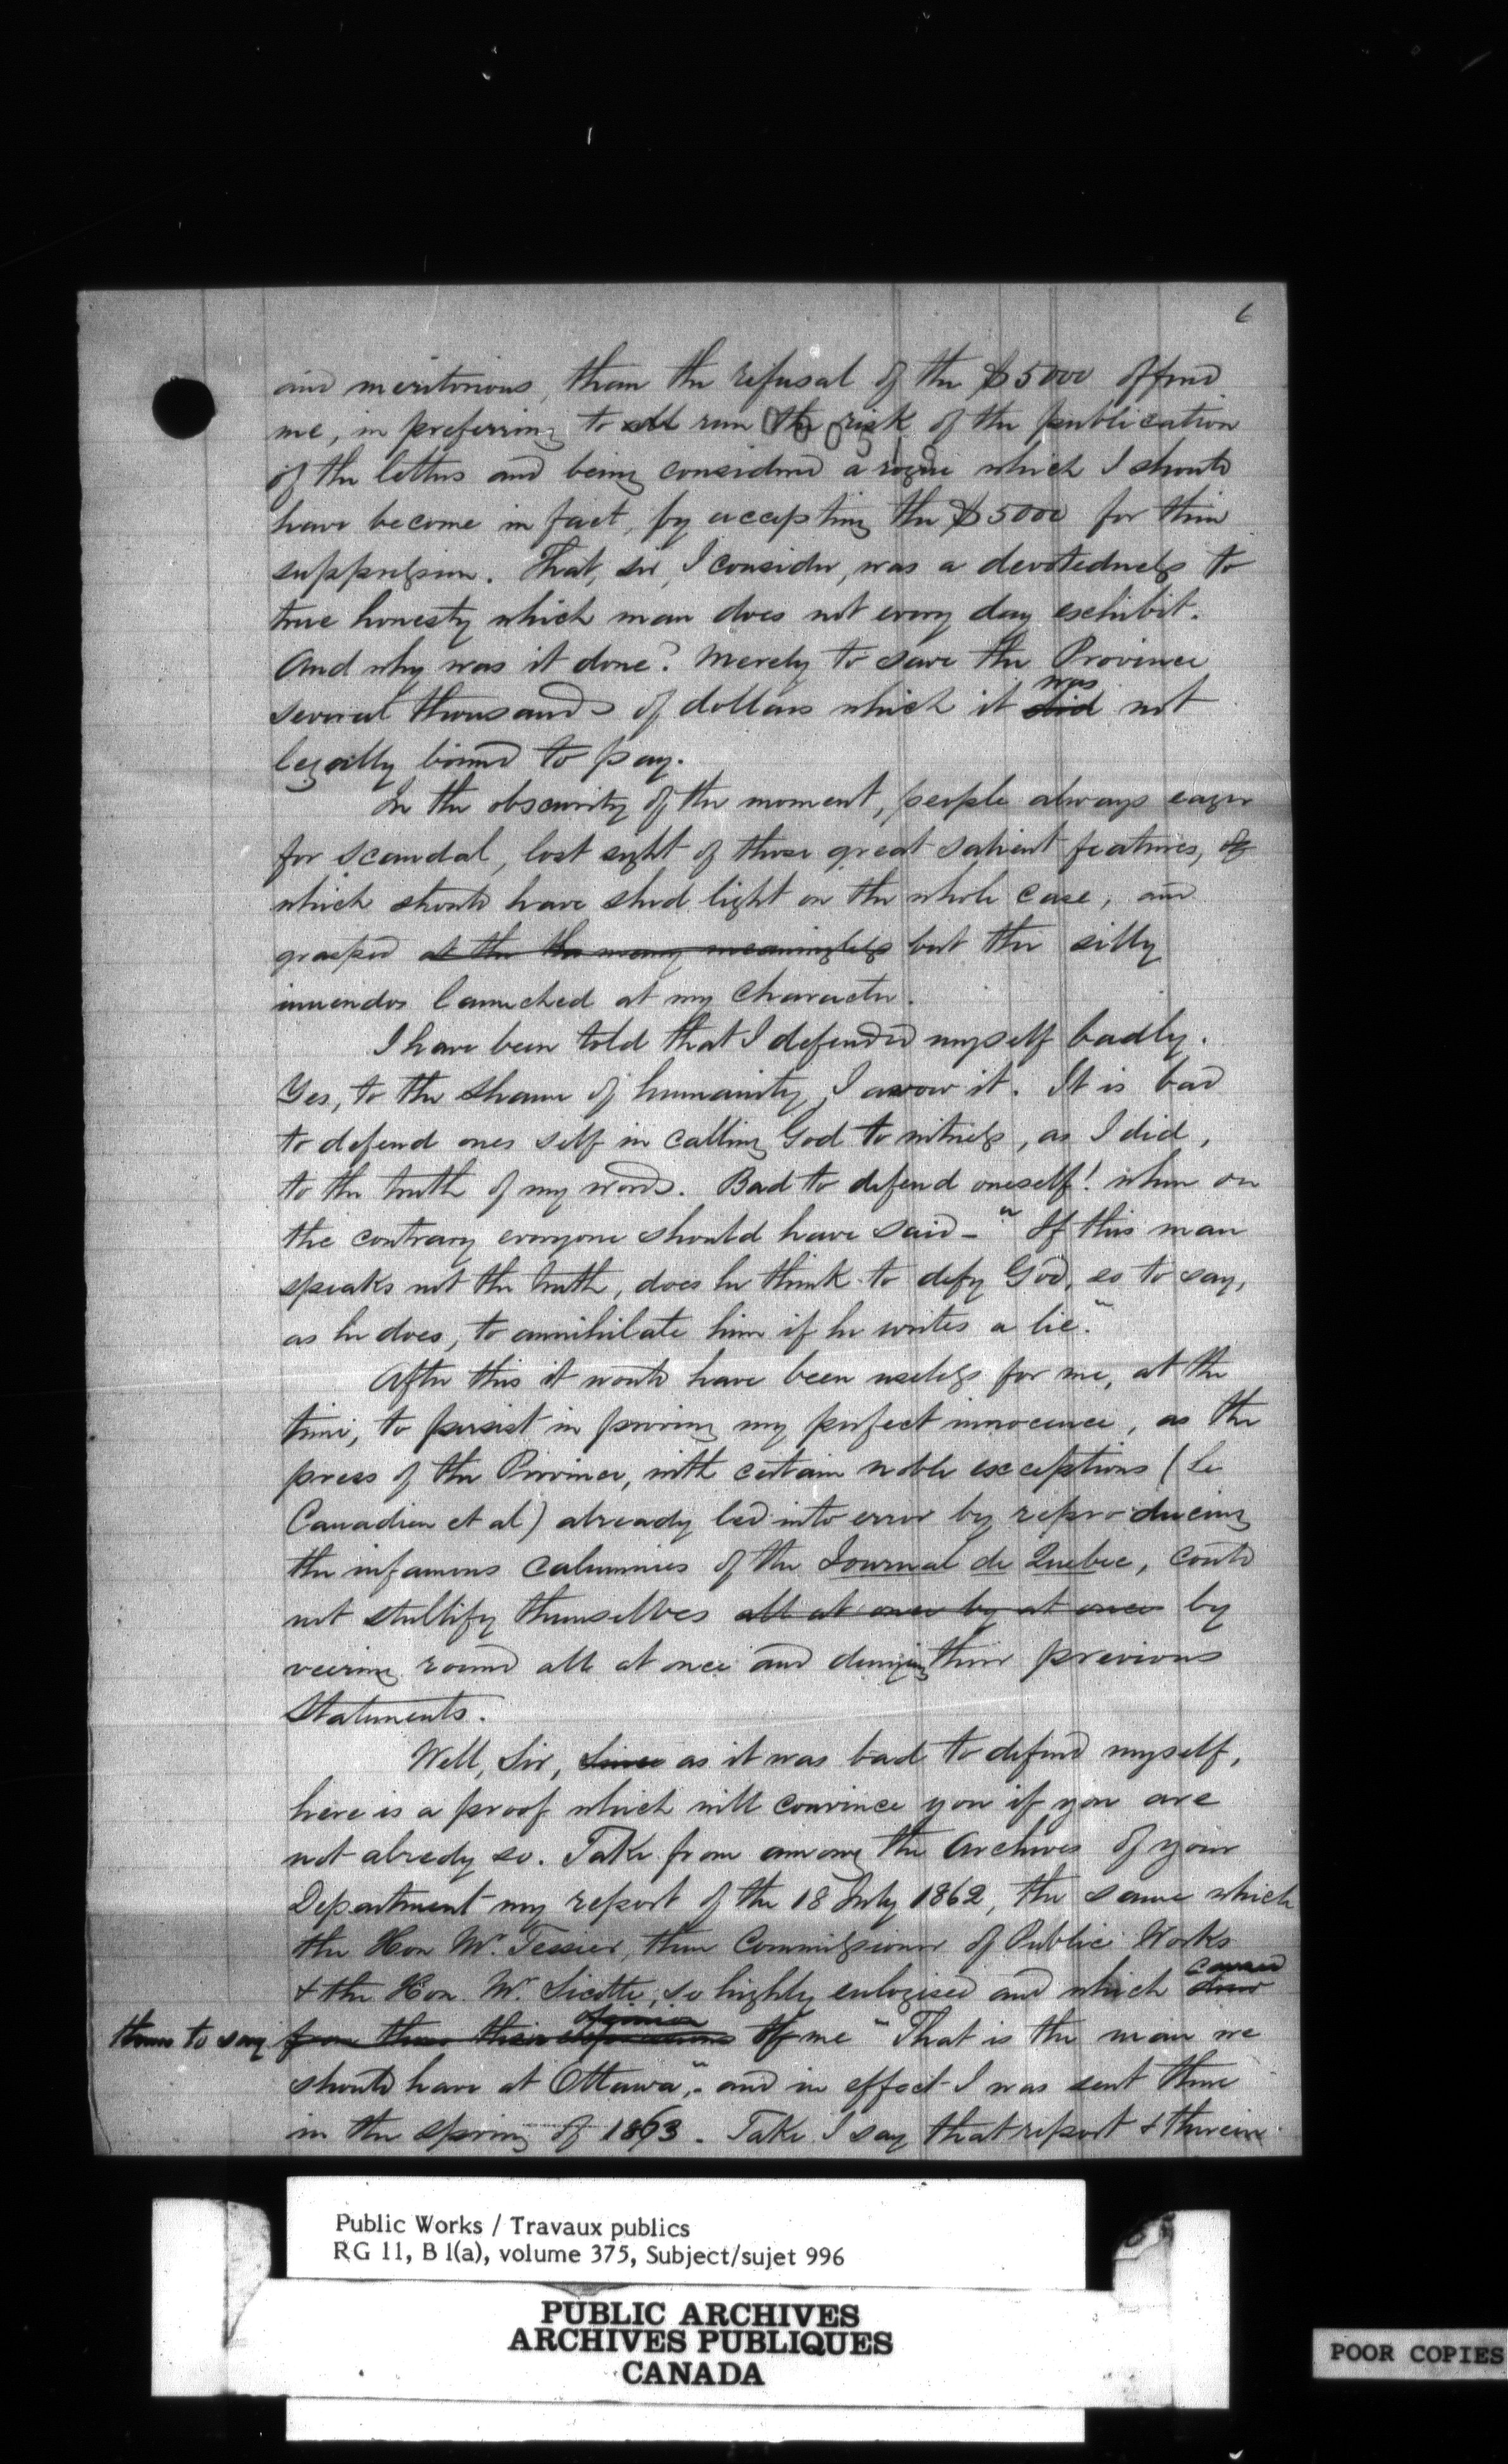 6
and meritorious, than the refusal of the $5000 offered
me, in preferring to run the risk of the publication
of the letters and being considered a rogue which I should
have become in fact, by accepting the $5000 for their
suppression. That, sir, I consider, was a devotedness to
true honesty which man does not every day exhibit.
And why was it done? Merely to save the Province
several thousands of dollars which it did was not
legally bound to pay.
In the obscurity of the moment, people always eager
for scandal, lost sight of those great salient features, of
which should have shed light on the whole case, and
grasped at the the many meaningless but the silly
inuendos launched at my character.
I have been told that I defended myself badly.
Yes, to the shame of humanity, I avow it. It is bad
to defend ones self in calling God to witness, as I did,
to the truth of my words. Bad to defend oneself! when on
the contrary everyone should have said - " If this man
speaks not the truth, does he think to defy God, so to say,
as he does, to annihilate him if he writes a lie."
After this it would have been useless for me, at the
time, to persist in proving my perfect innocence, as the
press of the Province, with certain noble exceptions (Le
Canadien et al) already led into error by repro-ducing
the infamous calumnies of the Journal de Quebec, could
not stultify themselves all at once by at once by
veering round all at once and denying their previous
statements.
Well, Sir, Since as it was bad to defend myself,
here is a proof which will convince you if you are
not alredy so. Take from among the Archives of your
Department my report of the 18 July 1862, the same which
the Hon Mr. Tessier, then Commissioner of Public Works
& the Hon. Mr. Sicotte, so highly eulogised and which drew caused
them to say from them their opinion of me " That is the man we
should have at Ottawa", and in effect I was sent there
in the spring of 1863. Take I say that report & therein
000518
Public Works / Travaux publics
RG 11, B 1(a), volume 375, Subject/sujet 996
PUBLIC ARCHIVES
ARCHIVES PUBLIQUES
CANADA
POOR COPIES